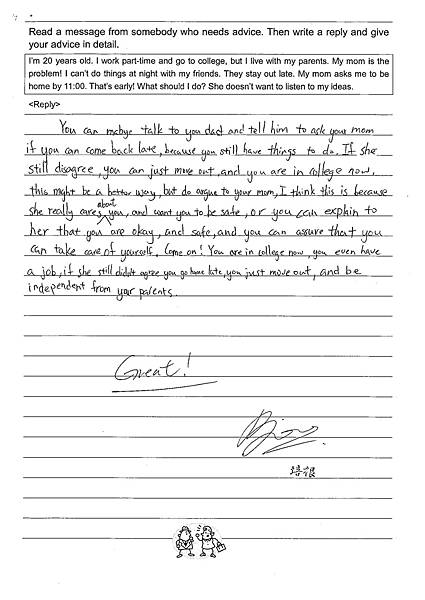 Read a message from somebody who needs advice. Then write a reply and give
your advice in detail.
I'm 20 years old. I work part-time and go to college, but I live with my parents. My mom is the
problem! I can't do things at night with my friends. They stay out late. My mom asks me to be
home by 11:00. That's early! What should I do? She doesn't want to listen to my ideas.
<Reply>
You can mabye talk to you dad and tell him to ask your mom
if you can come back late, because you still have things to do. If she
still disagree, you can just move out, and you are in college now,
this might be a better way, but do argue to your mom, I think this is because
she really cares about you, and want you to be safe, or you can explain to
her that you are okay, and safe, and you can assure that you
can take care of yourself. Come on! You are in college now you even have
a job, if she still didn't agree you go home late, you just move out, and be
independent from your parents.
Great!
培根